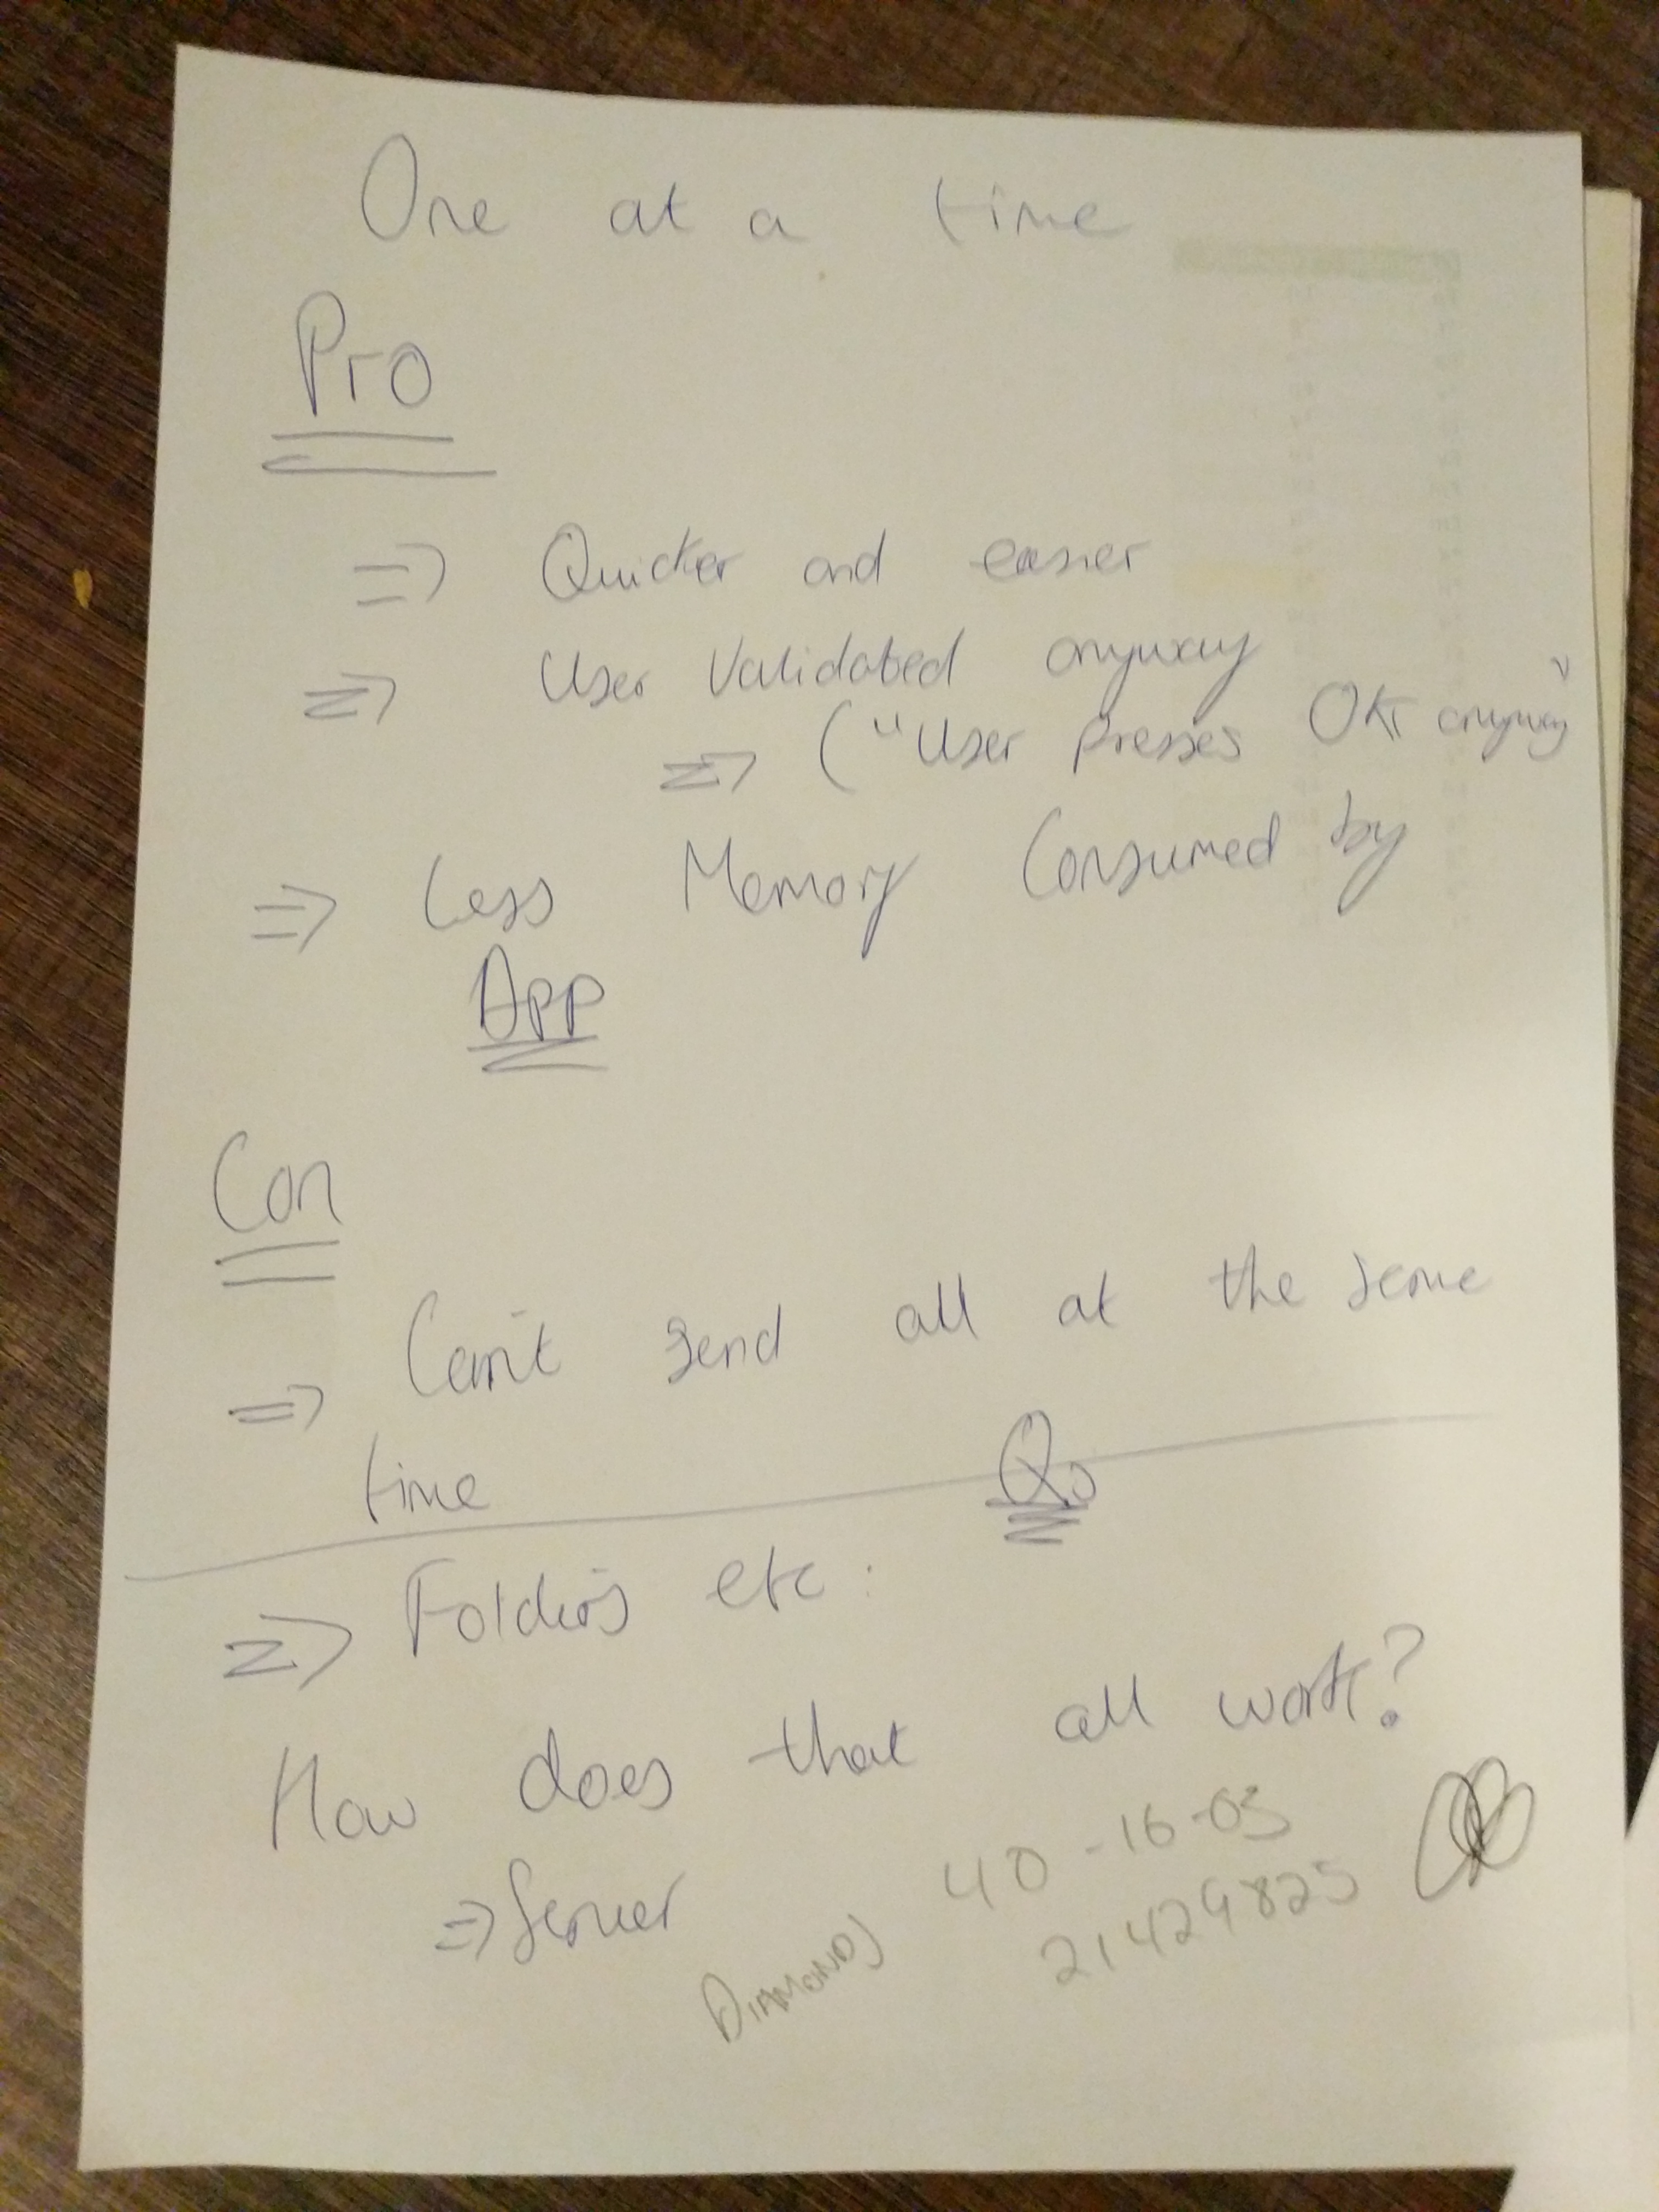 One at a time
Pro
⇒ Quicker and easier
⇒ User Validated anyway
⇒ ("User presses OK anyway"
⇒ Less Memory Consumed by
App
Con
⇒ Can't send all at the same
time
Qs
⇒ Folders etc:
How does that all work?
⇒ Server
DIAMONDS
40-16-03
21429825